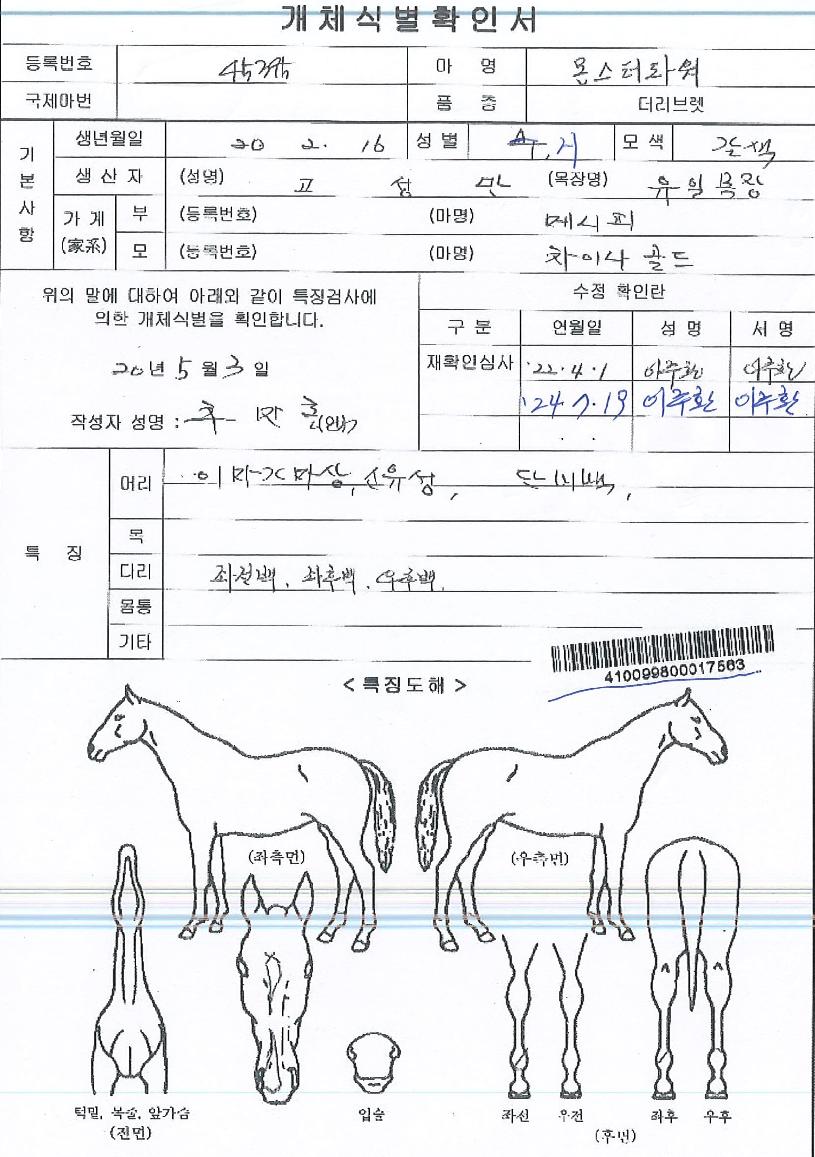 개체식별확인서
등록번호 마 명 몬스터파워
국제마번 품 종 더러브렛
기본사항
생년월일 20 2. 16 성별 수, 거 모색 갈색
생산자 (성명) 고 성 만 (목장명) 유일목장
가계 (家系) 부 (등록번호) (마명) 메시피
모 (등록번호) (마명) 차이나 골드
위의 말에 대하여 아래와 같이 특징검사에
의한 개체식별을 확인합니다.
20년 5월 3일
작성자 성명 : (인)
수정 확인란
구 분 연월일 성 명 서 명
재확인심사 '22.4.1 이주환 이주환
'24.7.19 이주환 이주환
. .
특 징
머리 유성, 단비백,
목
다리 좌전백, 좌후백, 우후백.
몸통
기타
410099800017563
< 특징도해 >
(좌측면) (우측면)
턱밑, 목줄, 앞가슴 입술 좌전 우전 좌후 우후
(전면) (후면)